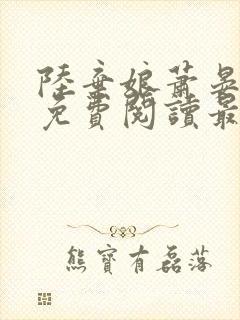 陸棄娘蕭晏
免費閱讀最
熊寶有磊落